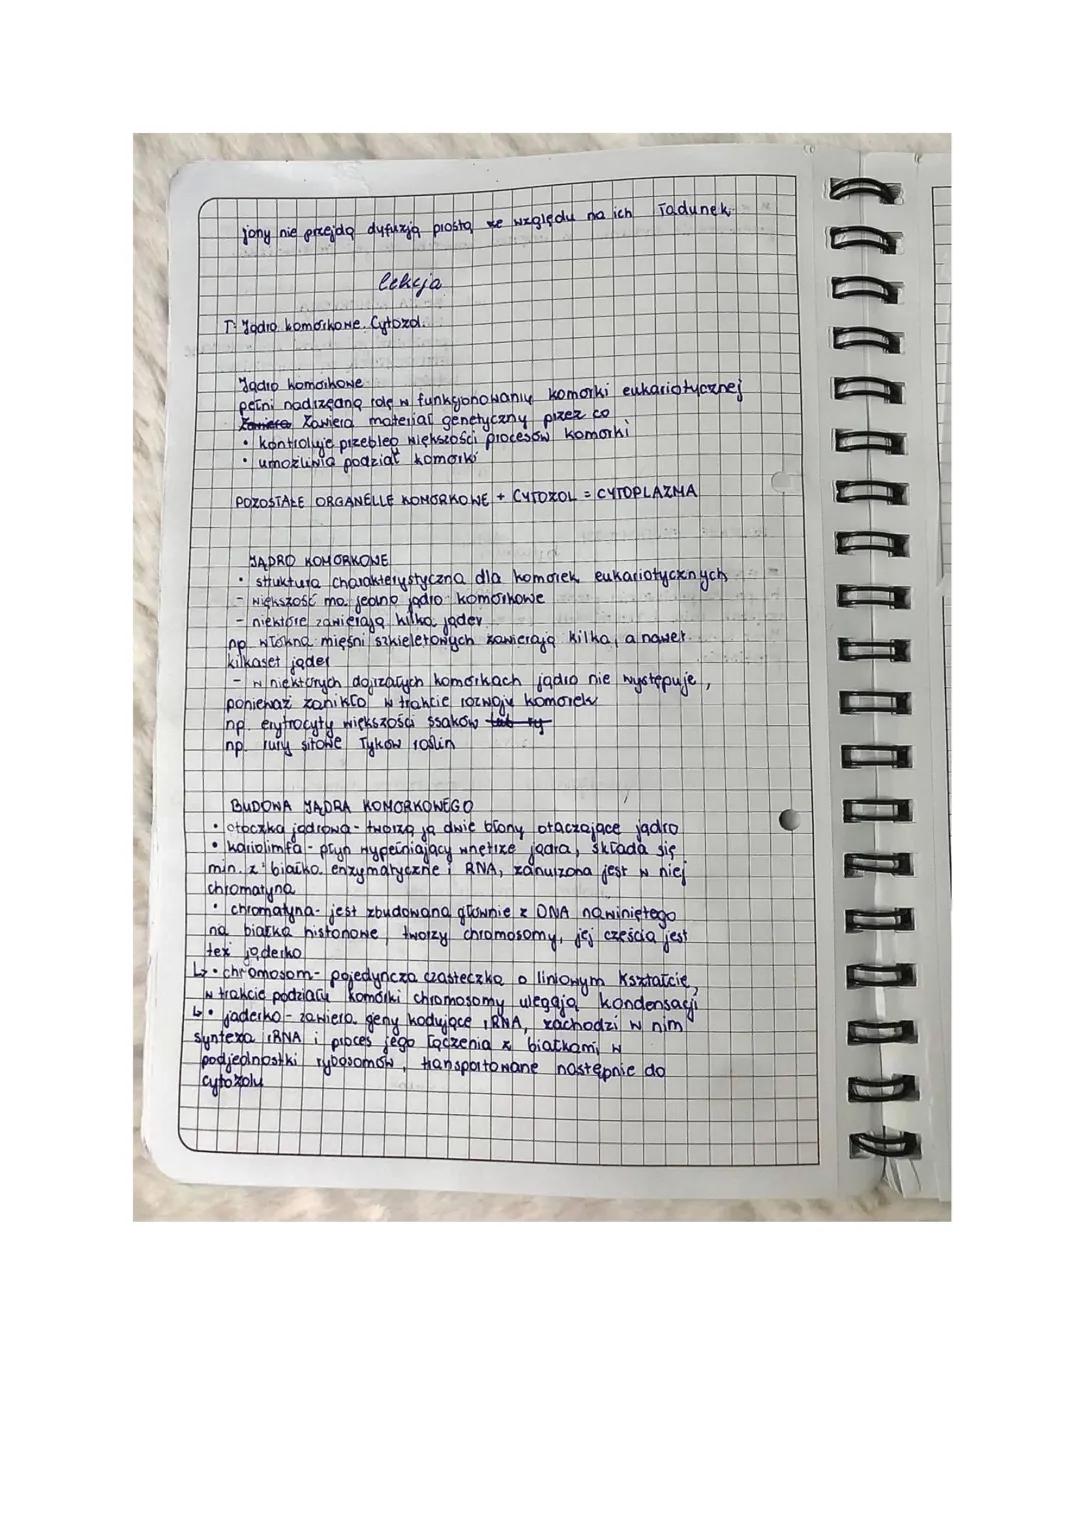 jony nie przejdą dyfuzją prostą ze względu na ich ładunek
lekcja
T: Jądro komórkowe. Cytozol.
Jądro komórkowe
pełni nadrzędną rolę w funkcjonowaniu komórki eukariotycznej
Zawiera Zawiera materiał genetyczny przez co
• kontroluje przebieg większości procesów komórki
• umożliwia podział komórki
POZOSTAŁE ORGANELLE KOMÓRKOWE + CYTOZOL = CYTOPLAZMA
JĄDRO KOMÓRKOWE
• struktura charakterystyczna dla komórek eukariotycznych
- większość ma jedno jądro komórkowe
- niektóre zawierają kilka jąder
np. włókna mięśni szkieletowych zawierają kilka, a nawet
kilkaset jąder
- w niektórych dojrzałych komórkach jądro nie występuje,
ponieważ zanikło w trakcie rozwoju komórek
np. erytrocyty większości ssaków
np. rury sitowe łyków roślin
BUDOWA JĄDRA KOMÓRKOWEGO
• otoczka jądrowa - tworzą ją dwie błony otaczające jądro
• kariolimfa - płyn wypełniający wnętrze jądra, składa się
min. z białka enzymatyczne i RNA, zanurzona jest w niej
chromatyna
• chromatyna - jest zbudowana głównie z DNA nawiniętego
na białka histonowe, tworzy chromosomy, jej częścią jest
też jąderko
↳ • chromosom - pojedyncza cząsteczka o liniowym kształcie,
w trakcie podziału komórki chromosomy ulegają kondensacji
↳ • jąderko - zawiera geny kodujące rRNA, zachodzi w nim
synteza rRNA i proces jego łączenia z białkami w
podjednostki rybosomów, transportowane następnie do
cytozolu